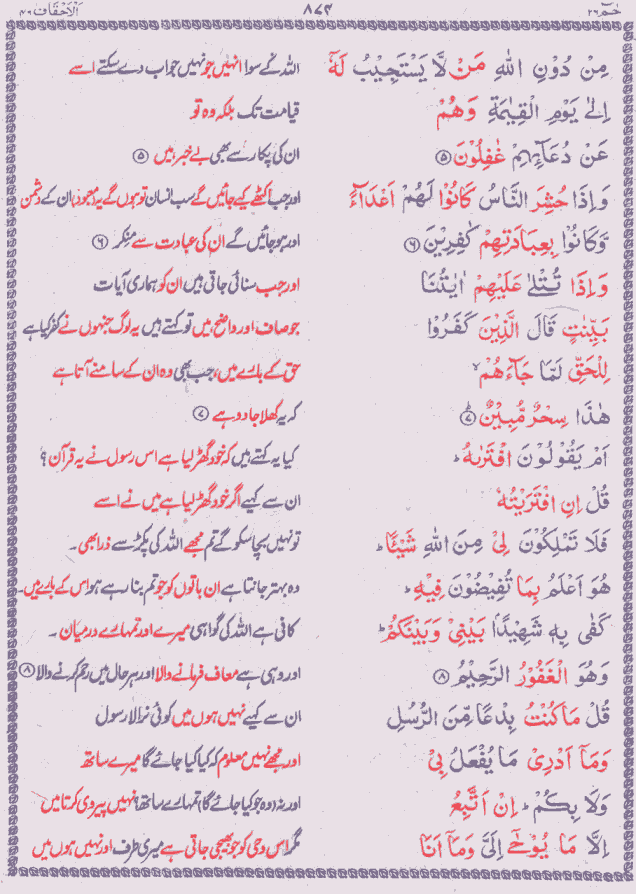 حٰمٓ ٢٦ ٨٧٣ اَلْاَحْقَاف ٤٦
مِنْ دُوْنِ اللّٰهِ مَنْ لَّا يَسْتَجِيْبُ لَهٗٓ اللہ کے سوا انہیں جو نہیں جواب دے سکتے اسے
اِلٰى يَوْمِ الْقِيٰمَةِ وَهُمْ قیامت تک بلکہ وہ تو
عَنْ دُعَآئِهِمْ غٰفِلُوْنَ ⑤ ان کی پکار سے بھی بے خبر ہیں ⑤
وَاِذَا حُشِرَ النَّاسُ كَانُوْا لَهُمْ اَعْدَآءً اور جب اکٹھے کیے جائیں گے سب انسان تو ہوں گے یہ (معبود) ان کے دشمن
وَّكَانُوْا بِعِبَادَتِهِمْ كٰفِرِيْنَ ⑥ اور ہو جائیں گے ان کی عبادت سے منکر ⑥
وَاِذَا تُتْلٰى عَلَيْهِمْ اٰيٰتُنَا اور جب سنائی جاتی ہیں ان کو ہماری آیات
بَيِّنٰتٍ قَالَ الَّذِيْنَ كَفَرُوْا جو صاف اور واضح ہیں تو کہتے ہیں یہ لوگ جنہوں نے کفر کیا ہے
لِلْحَقِّ لَمَّا جَآءَهُمْ ۙ حق کے بارے میں، جب بھی وہ ان کے سامنے آتا ہے
هٰذَا سِحْرٌ مُّبِيْنٌ ⑦ کہ یہ کھلا جادو ہے ⑦
اَمْ يَقُوْلُوْنَ افْتَرٰىهُ ؕ کیا یہ کہتے ہیں کہ خود گھڑ لیا ہے اس رسول نے یہ قرآن؟
قُلْ اِنِ افْتَرَيْتُهٗ ان سے کہیے اگر خود گھڑ لیا ہے میں نے اسے
فَلَا تَمْلِكُوْنَ لِيْ مِنَ اللّٰهِ شَيْئًا ؕ تو نہیں بچا سکو گے تم مجھے اللہ کی پکڑ سے ذرا بھی۔
هُوَ اَعْلَمُ بِمَا تُفِيْضُوْنَ فِيْهِ ؕ وہ بہتر جانتا ہے ان باتوں کو جو تم بنا رہے ہو اس کے بارے میں۔
كَفٰى بِهٖ شَهِيْدًۢا بَيْنِيْ وَبَيْنَكُمْ ؕ کافی ہے اللہ کی گواہی میرے اور تمہارے درمیان۔
وَهُوَ الْغَفُوْرُ الرَّحِيْمُ ⑧ اور وہی ہے معاف فرمانے والا اور ہر حال میں رحم کرنے والا ⑧
قُلْ مَا كُنْتُ بِدْعًا مِّنَ الرُّسُلِ ان سے کہیے نہیں ہوں میں کوئی نرالا رسول
وَمَآ اَدْرِيْ مَا يُفْعَلُ بِيْ اور مجھے نہیں معلوم کہ کیا کیا جائے گا میرے ساتھ
وَلَا بِكُمْ ؕ اِنْ اَتَّبِعُ اور نہ (وہ جو کیا جائے گا) تمہارے ساتھ؟ نہیں پیروی کرتا میں
اِلَّا مَا يُوْحٰٓى اِلَيَّ وَمَآ اَنَا مگر اس وحی کو جو بھیجی جاتی ہے میری طرف اور نہیں ہوں میں